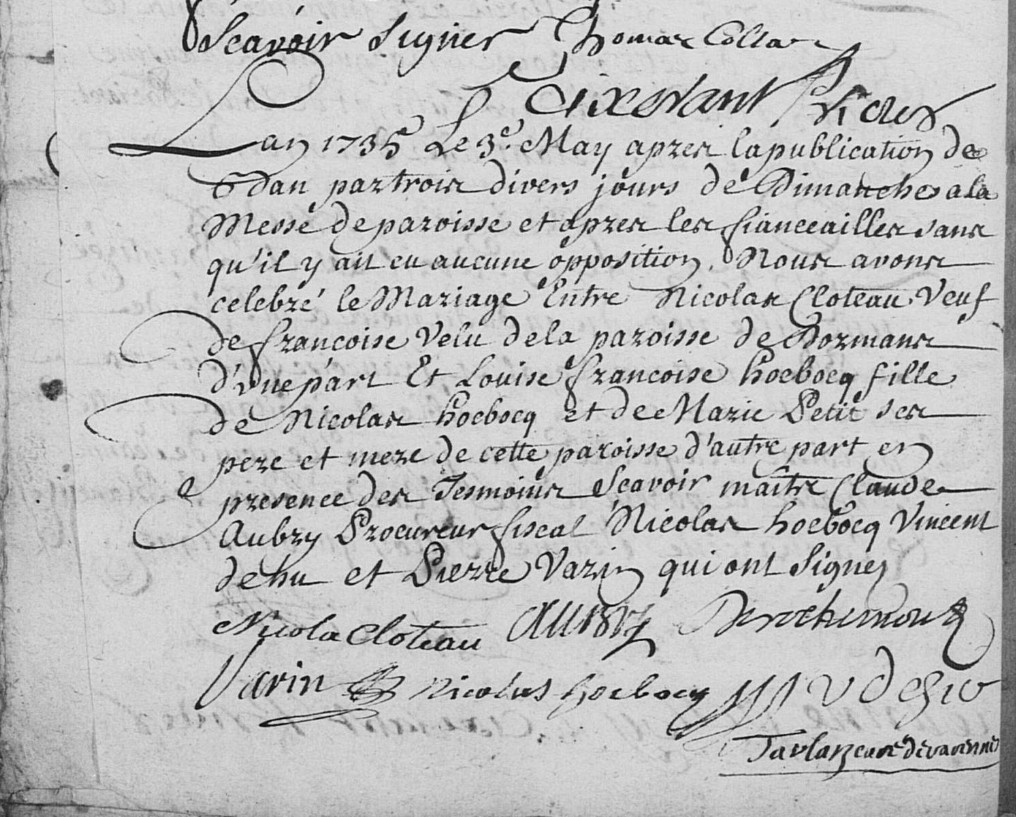 Scavoir Signer Thomas Colla
Lan 1735 Le 3e. May apres la publication de
Bdan par trois divers jours de Dimanches a la
Messe de paroisse et apres les fiancailles sans
qu'il y ait eu aucune opposition. Nous avons
celebré le Mariage Entre Nicolas Cloteau Veuf
de francoise Velu de la paroisse de Dormans
d'une part Et Louise francoise hocbocq fille
de Nicolas hocbocq et de Marie Petit ses
pere et mere de cette paroisse d'autre part en
presence des Tesmoins Scavoir maitre Claude
Aubry Procureur fiscal Nicolas hocbocq Vincent
dehu et Pierre Varin qui ont Signez
Nicola Cloteau Aubry
Varin Nicolas hocbocq V dehu